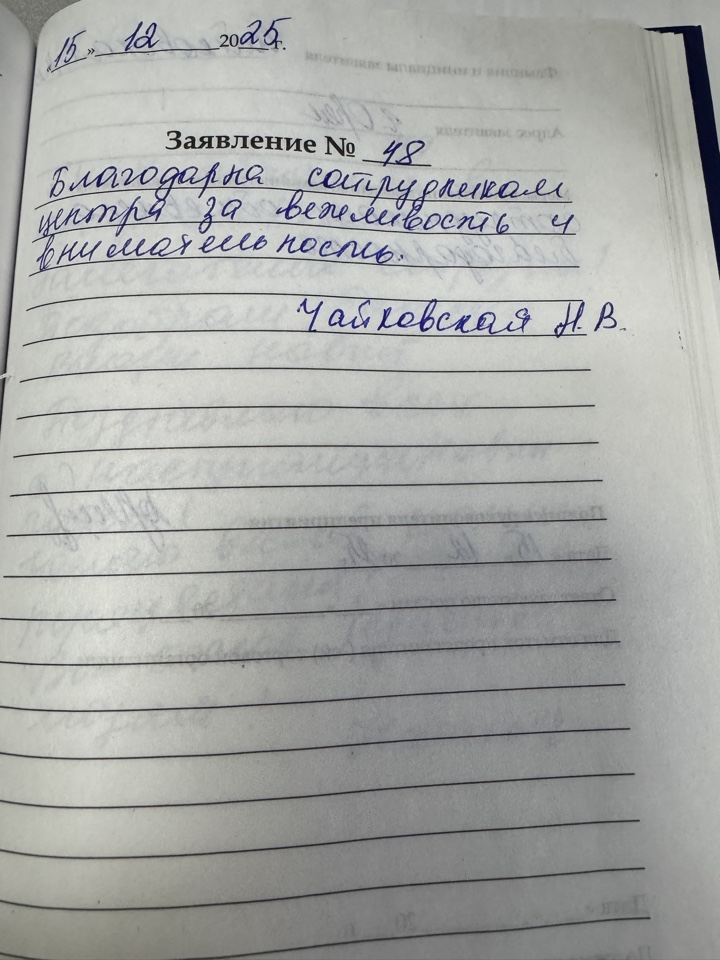 «15» 12 2025г.
Заявление № 48
Благодарна сотрудникам
центра за вежливость и
внимательность.
Чайковская Н.В.